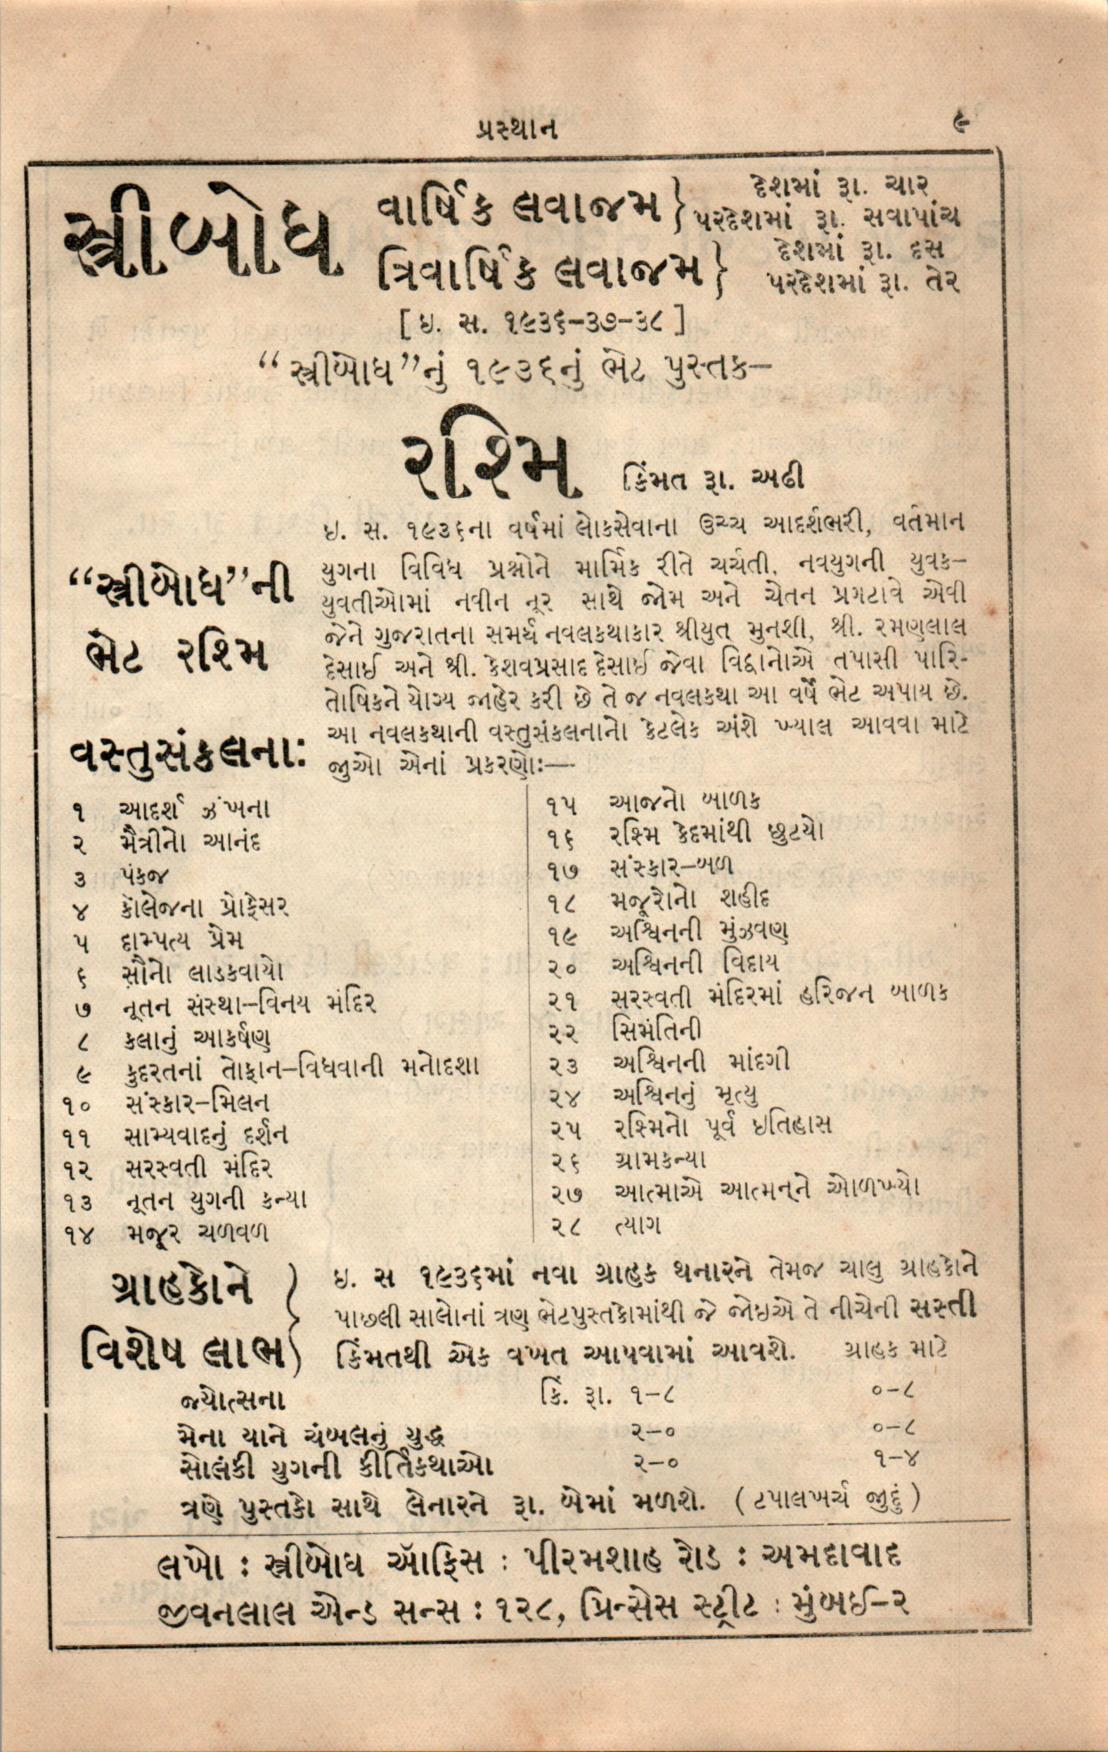 પ્રસ્થાન
૯
સ્ત્રીબોધ
વાર્ષિક લવાજમ } દેશમાં રૂા. ચાર
પરદેશમાં રૂા. સવાપાંચ
ત્રિવાર્ષિક લવાજમ } દેશમાં રૂા. દસ
પરદેશમાં રૂા. તેર
[ ઇ. સ. ૧૯૩૬-૩૭-૩૮ ]
“સ્ત્રીબોધ”નું ૧૯૩૬નું ભેટ પુસ્તક–
રશ્મિ કિંમત રૂા. અઢી
“સ્ત્રીબોધ”ની
ભેટ રશ્મિ
વસ્તુસંકલના:
ઇ. સ. ૧૯૩૬ના વર્ષમાં લોકસેવાના ઉચ્ચ આદર્શભરી, વર્તમાન
યુગના વિવિધ પ્રશ્નોને માર્મિક રીતે ચર્ચતી. નવયુગની યુવક–
યુવતીઓમાં નવીન નૂર સાથે જોમ અને ચેતન પ્રગટાવે એવી
જેને ગુજરાતના સમર્થ નવલકથાકાર શ્રીયુત્ મુનશી, શ્રી. રમણલાલ
દેસાઈ અને શ્રી. કેશવપ્રસાદ દેસાઈ જેવા વિદ્વાનોએ તપાસી પારિ-
તોષિકને યોગ્ય જાહેર કરી છે તે જ નવલકથા આ વર્ષે ભેટ અપાય છે.
આ નવલકથાની વસ્તુસંકલનાનો કેટલેક અંશે ખ્યાલ આવવા માટે
જુઓ એનાં પ્રકરણોઃ—
૧ આદર્શ ઝંખના
૨ મૈત્રીનો આનંદ
૩ પંકજ
૪ કૉલેજના પ્રોફેસર
૫ દામ્પત્ય પ્રેમ
૬ સૌનો લાડકવાયો
૭ નૂતન સંસ્થા–વિનય મંદિર
૮ કલાનું આકર્ષણ
૯ કુદરતનાં તોફાન–વિધવાની મનોદશા
૧૦ સંસ્કાર–મિલન
૧૧ સામ્યવાદનું દર્શન
૧૨ સરસ્વતી મંદિર
૧૩ નૂતન યુગની કન્યા
૧૪ મજૂર ચળવળ
૧૫ આજનો બાળક
૧૬ રશ્મિ કેદમાંથી છુટયો
૧૭ સંસ્કાર–બળ
૧૮ મજૂરોનો શહીદ
૧૯ અશ્વિનની મુંઝવણ
૨૦ અશ્વિનની વિદાય
૨૧ સરસ્વતી મંદિરમાં હરિજન બાળક
૨૨ સિમંતિની
૨૩ અશ્વિનની માંદગી
૨૪ અશ્વિનનું મૃત્યુ
૨૫ રશ્મિનો પૂર્વ ઇતિહાસ
૨૬ ગ્રામકન્યા
૨૭ આત્માએ આત્મન્‌ને ઓળખ્યો
૨૮ ત્યાગ
ગ્રાહકોને
વિશેષ લાભ }
ઇ. સ ૧૯૩૬માં નવા ગ્રાહક થનારને તેમજ ચાલુ ગ્રાહકોને
પાછલી સાલોનાં ત્રણ ભેટપુસ્તકોમાંથી જે જોઇએ તે નીચેની સસ્તી
કિંમતથી એક વખત આપવામાં આવશે. ગ્રાહક માટે
જ્યોત્સના કિં. રૂા. ૧–૮ ૦–૮
મેના યાને ચંબલનું યુદ્ધ ૨–૦ ૦–૮
સોલંકી યુગની કીર્તિકથાઓ ૨–૦ ૧–૪
ત્રણે પુસ્તકો સાથે લેનારને રૂા. બેમાં મળશે. ( ટપાલખર્ચ જીદું )
લખો : સ્ત્રીબોધ ઑફિસ : પીરમશાહ રોડ : અમદાવાદ
જીવનલાલ એન્ડ સન્સ : ૧૨૮, પ્રિન્સેસ સ્ટ્રીટ : મુંબઈ–૨